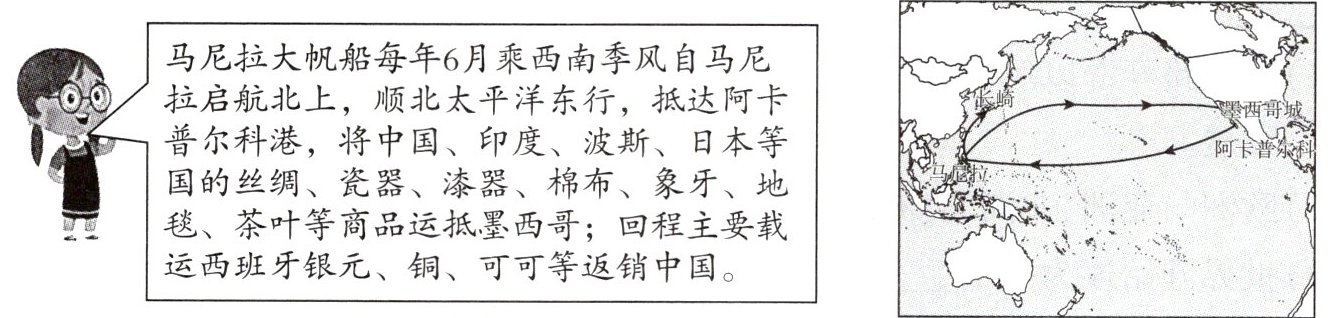 马尼拉大帆船每年6月乘西南季风自马尼
拉启航北上，顺北太平洋东行，抵达阿卡
普尔科港，将中国、印度、波斯、日本等
国的丝绸、瓷器、漆器、棉布、象牙、地
毯、茶叶等商品运抵墨西哥；回程主要载
运西班牙银元、铜、可可等返销中国。
长崎
墨西哥城
阿卡普尔科
马尼拉